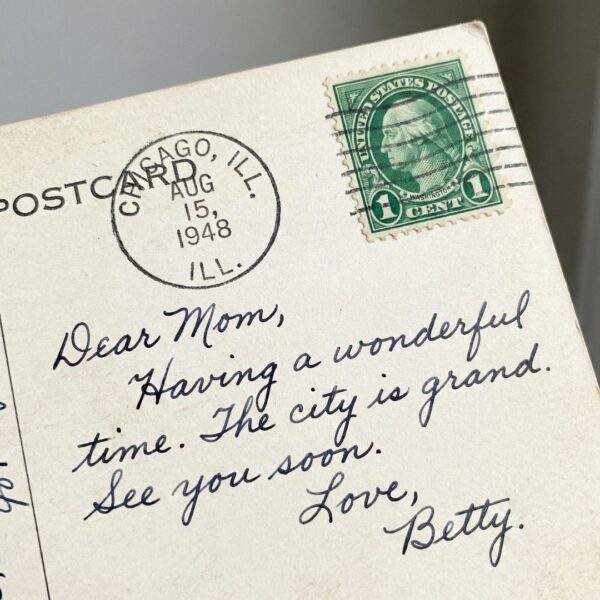 POSTCARD
CHICAGO, ILL.
AUG
15,
1948
ILL.
UNITED STATES POSTAGE
WASHINGTON
1 CENT 1
Dear Mom,
Having a wonderful
time. The city is grand.
See you soon.
Love,
Betty.